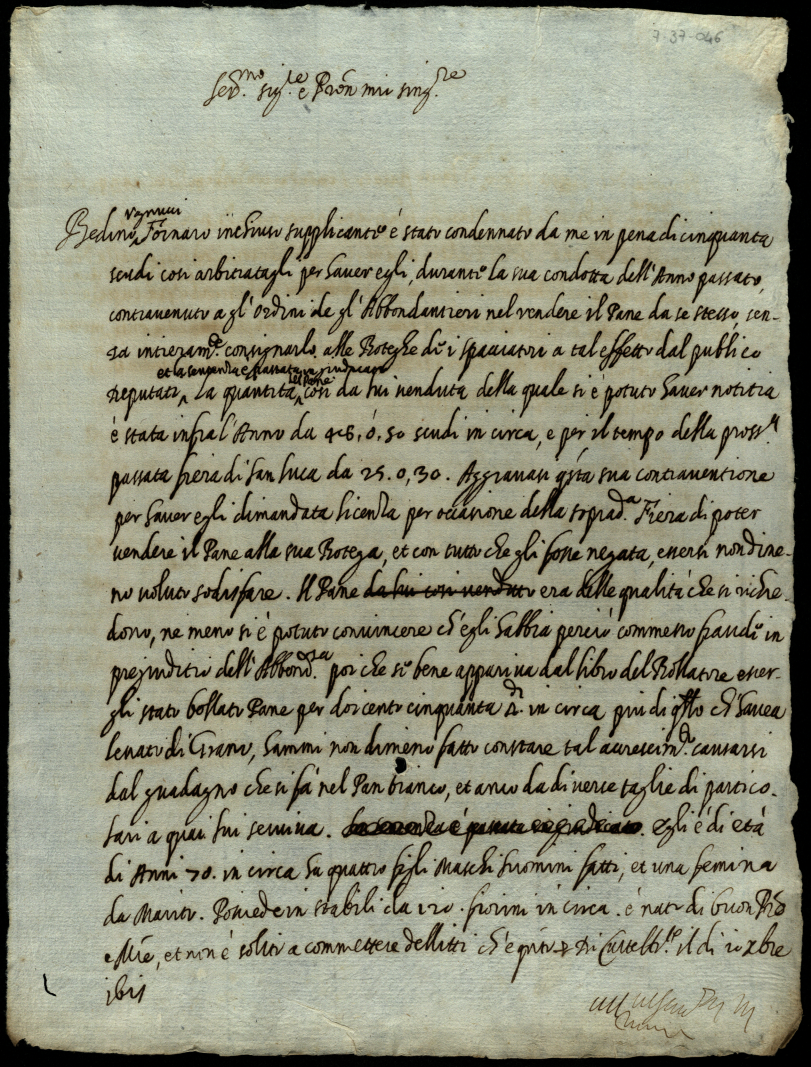 7-37-046
Ser.mo sig.re e Pron mio sing.re
Vannucci
Bedino Fornaro inchiuso supplicante é stato condennato da me in pena di cinquanta
scudi cosi arbitratagli per haver egli, durante la sua condotta dell'Anno passato,
contravenuto a gl'ordini de gl'Abbondantieri nel vendere il Pane da se stesso, sen-
za intieram.te consignarlo alle Boteghe de i spacciatori a tal effetto dal publico
et la sentenza é passata in giudicato
del Pane
deputati, La quantita cosi da lui venduta della quale si é potuto haver notitia
é stata infra l'Anno da 48, ó, 50 scudi in circa, e per il tempo della pross.a
passata fiera di San Luca da 25. o, 30. Aggravasi q.sta sua contraventione
per haver egli dimandata licenza per occasione della soprad.a Fiera di poter
vendere il Pane alla sua Botega, et con tutto che gli fosse negata, esserse nondime-
no voluto sodisfare. Il Pane da lui cosi venduto era delle qualitá che si richie-
dono, ne meno si é potuto convincere ch'egli habbia perció commesso fraude in
prejuditio dell'Abbond.za poi che se bene appariva dal libro del Bollatore esser-
gli stato bollato Pane per doicento cinquanta in circa piu di q.llo ch'havea
levato di Grano, hammi non dimeno fatto constare tal accrescim.to causarsi
dal guadagno che si fá nel Pan bianco, et anco da diverse taglie di partico-
lari a quai lui serviva. La sentenza é passata in giudicato. egli é di etá
di Anni 70. in circa ha quattro figli Maschi huomini fatti, et una femina
da Marito. Possiede in stabili da 120. fiorini in circa. é nato di buon P.re
e M.re, et non é solito a commettere delitti ch'é q.nto Di Castelb.te il di 10 xbre
1611